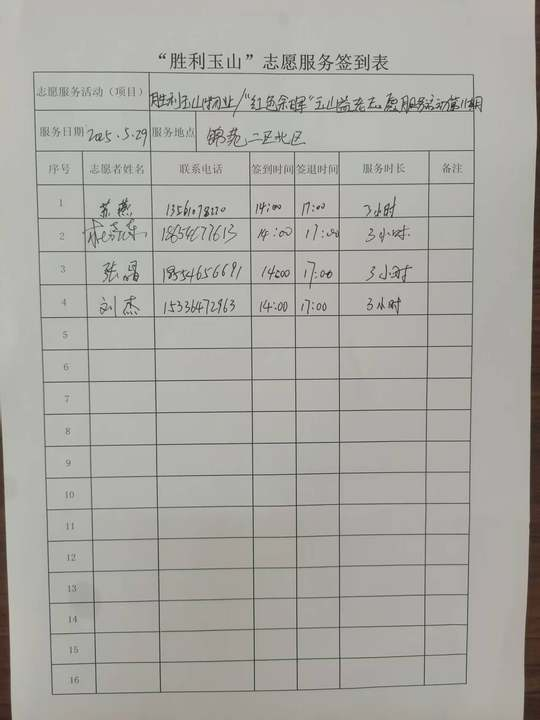 “胜利玉山”志愿服务签到表
志愿服务活动（项目） 胜利玉山物业/“红色余晖”玉山 志愿服务活动第 期
服务日期 2025.5.29 服务地点 锦苑二区北区
序号 志愿者姓名 联系电话 签到时间 签退时间 服务时长 备注
1 苏燕 13561078220 14:00 17:00 3小时
2 18654677613 14:00 17:00 3小时
3 张晶 18554656691 14:00 17:00 3小时
4 刘杰 15336472963 14:00 17:00 3小时
5
6
7
8
9
10
11
12
13
14
15
16